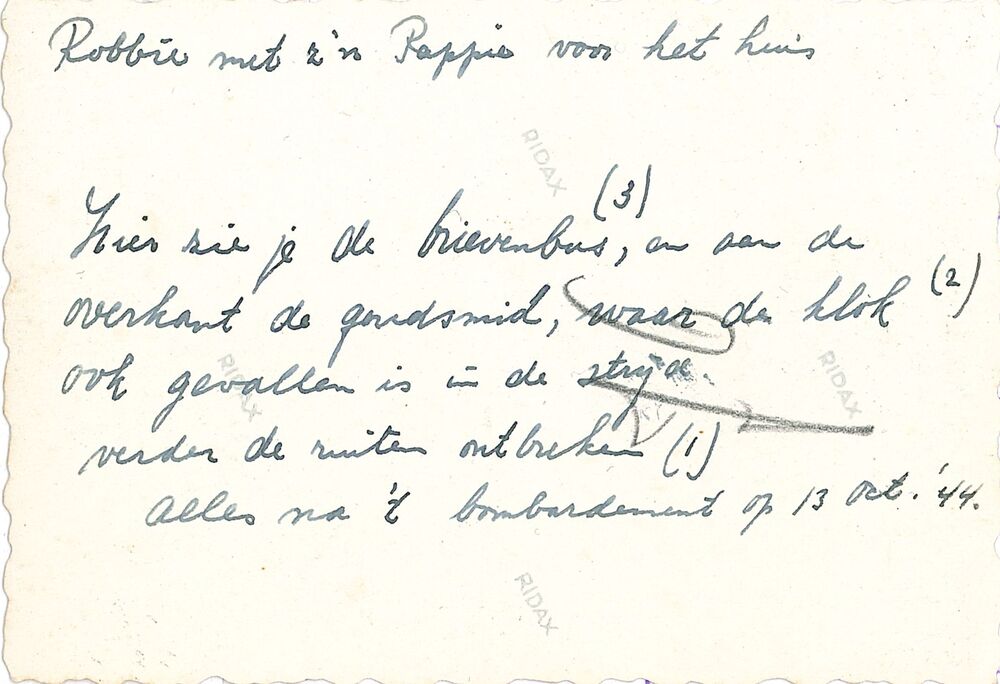 Robbie met z'n Pappie voor het huis
RIDAX
(3)
Hier zie je de brievenbus, en aan de
overkant de goudsmid, waar de klok (2)
ook gevallen is in de strijd.
RIDAX
RIDAX
verder de ruiten ontbreken (1)
Alles na 't bombardement op 13 Oct. '44.
RIDAX